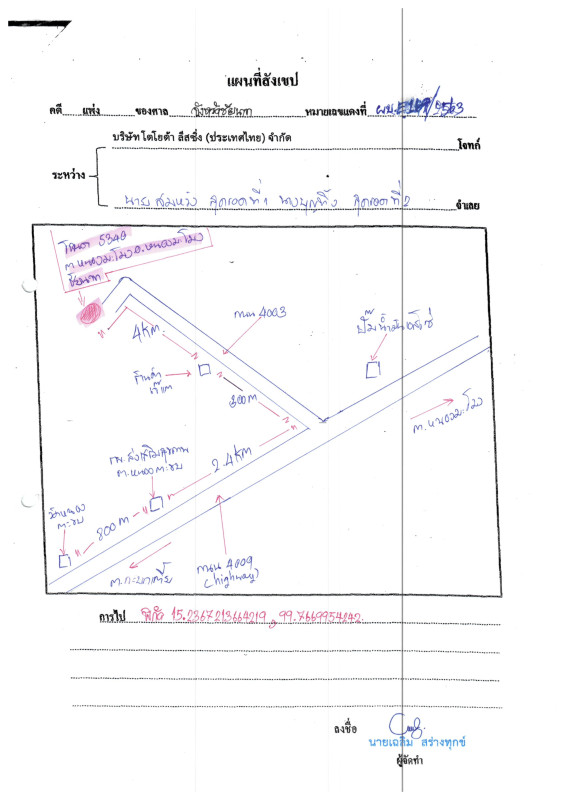 แผนที่สังเขป
คดี แพ่ง ของศาล จังหวัดชัยนาท หมายเลขแดงที่ ผบ.E169/2563
บริษัท โตโยต้า ลีสซิ่ง (ประเทศไทย) จำกัด โจทก์
ระหว่าง
นาย สมหวัง สุดเขตที่ 1 นางบุญทิ้ง สุดเขตที่ 2 จำเลย
โฉนด 5340
ต.หนองมะโมง อ.หนองมะโมง
ชัยนาท
ถนน 4003
4 KM.
ร้านค้า
800 m
2.4 KM
ต.หนองมะโมง
รพ.ส่งเสริมสุขภาพ
ต.หนองตะขบ
วัดหนอง
ตะขบ
800 m
ถนน 4009
(highway)
การไป พิกัด 15.2367213664219, 99.7669954242
ลงชื่อ
นายเฉลิม สร่างทุกข์
ผู้จัดทำ